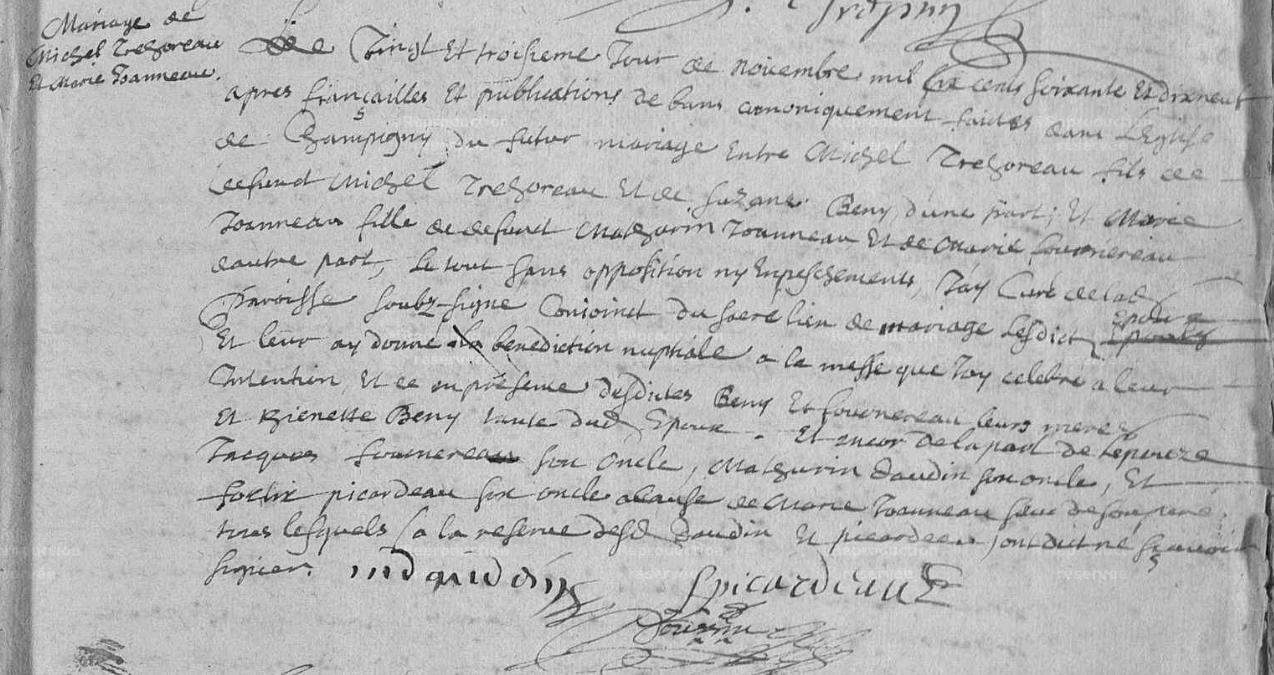 Mariage de
Michel Trehoreau
Et Marie Joanneau.
Le Vingt Et troisieme Jour de novembre mil six cents soixante Et dixneuf
apres fiançailles Et publications de bans canoniquement faites dans L'eglise
de Champigny du futur mariage Entre Michel Trehoreau fils de
defunct Michel Trehoreau Et de Suzane Beny d'une part; Et Marie
Joanneau fille de defunct Mathurin Joanneau Et de Marie fournereau
d'autre part, Le tout sans opposition ny Empeschements, J'ay Curé de lad
Paroisse soubz-signé Conjoinct du sacre lien de mariage Lesdict Epoux
Et leur ay donné la benediction nuptiale a la messe que J'ay celebré a leur
Intention Et ce en presence desdictes Beny Et fournereau leurs meres
Et Beny tante dud Epoux. Et encor de la part de Lepouze
Jacques fournereau son Oncle, Mathurin Daudin son oncle, Et
picardeau son oncle a cause de Marie Joanneau seur de son pere.
tous lesquels (a la reserve desd Daudin Et picardeau) ont dict ne scavoir
signer. m daudin picardeau